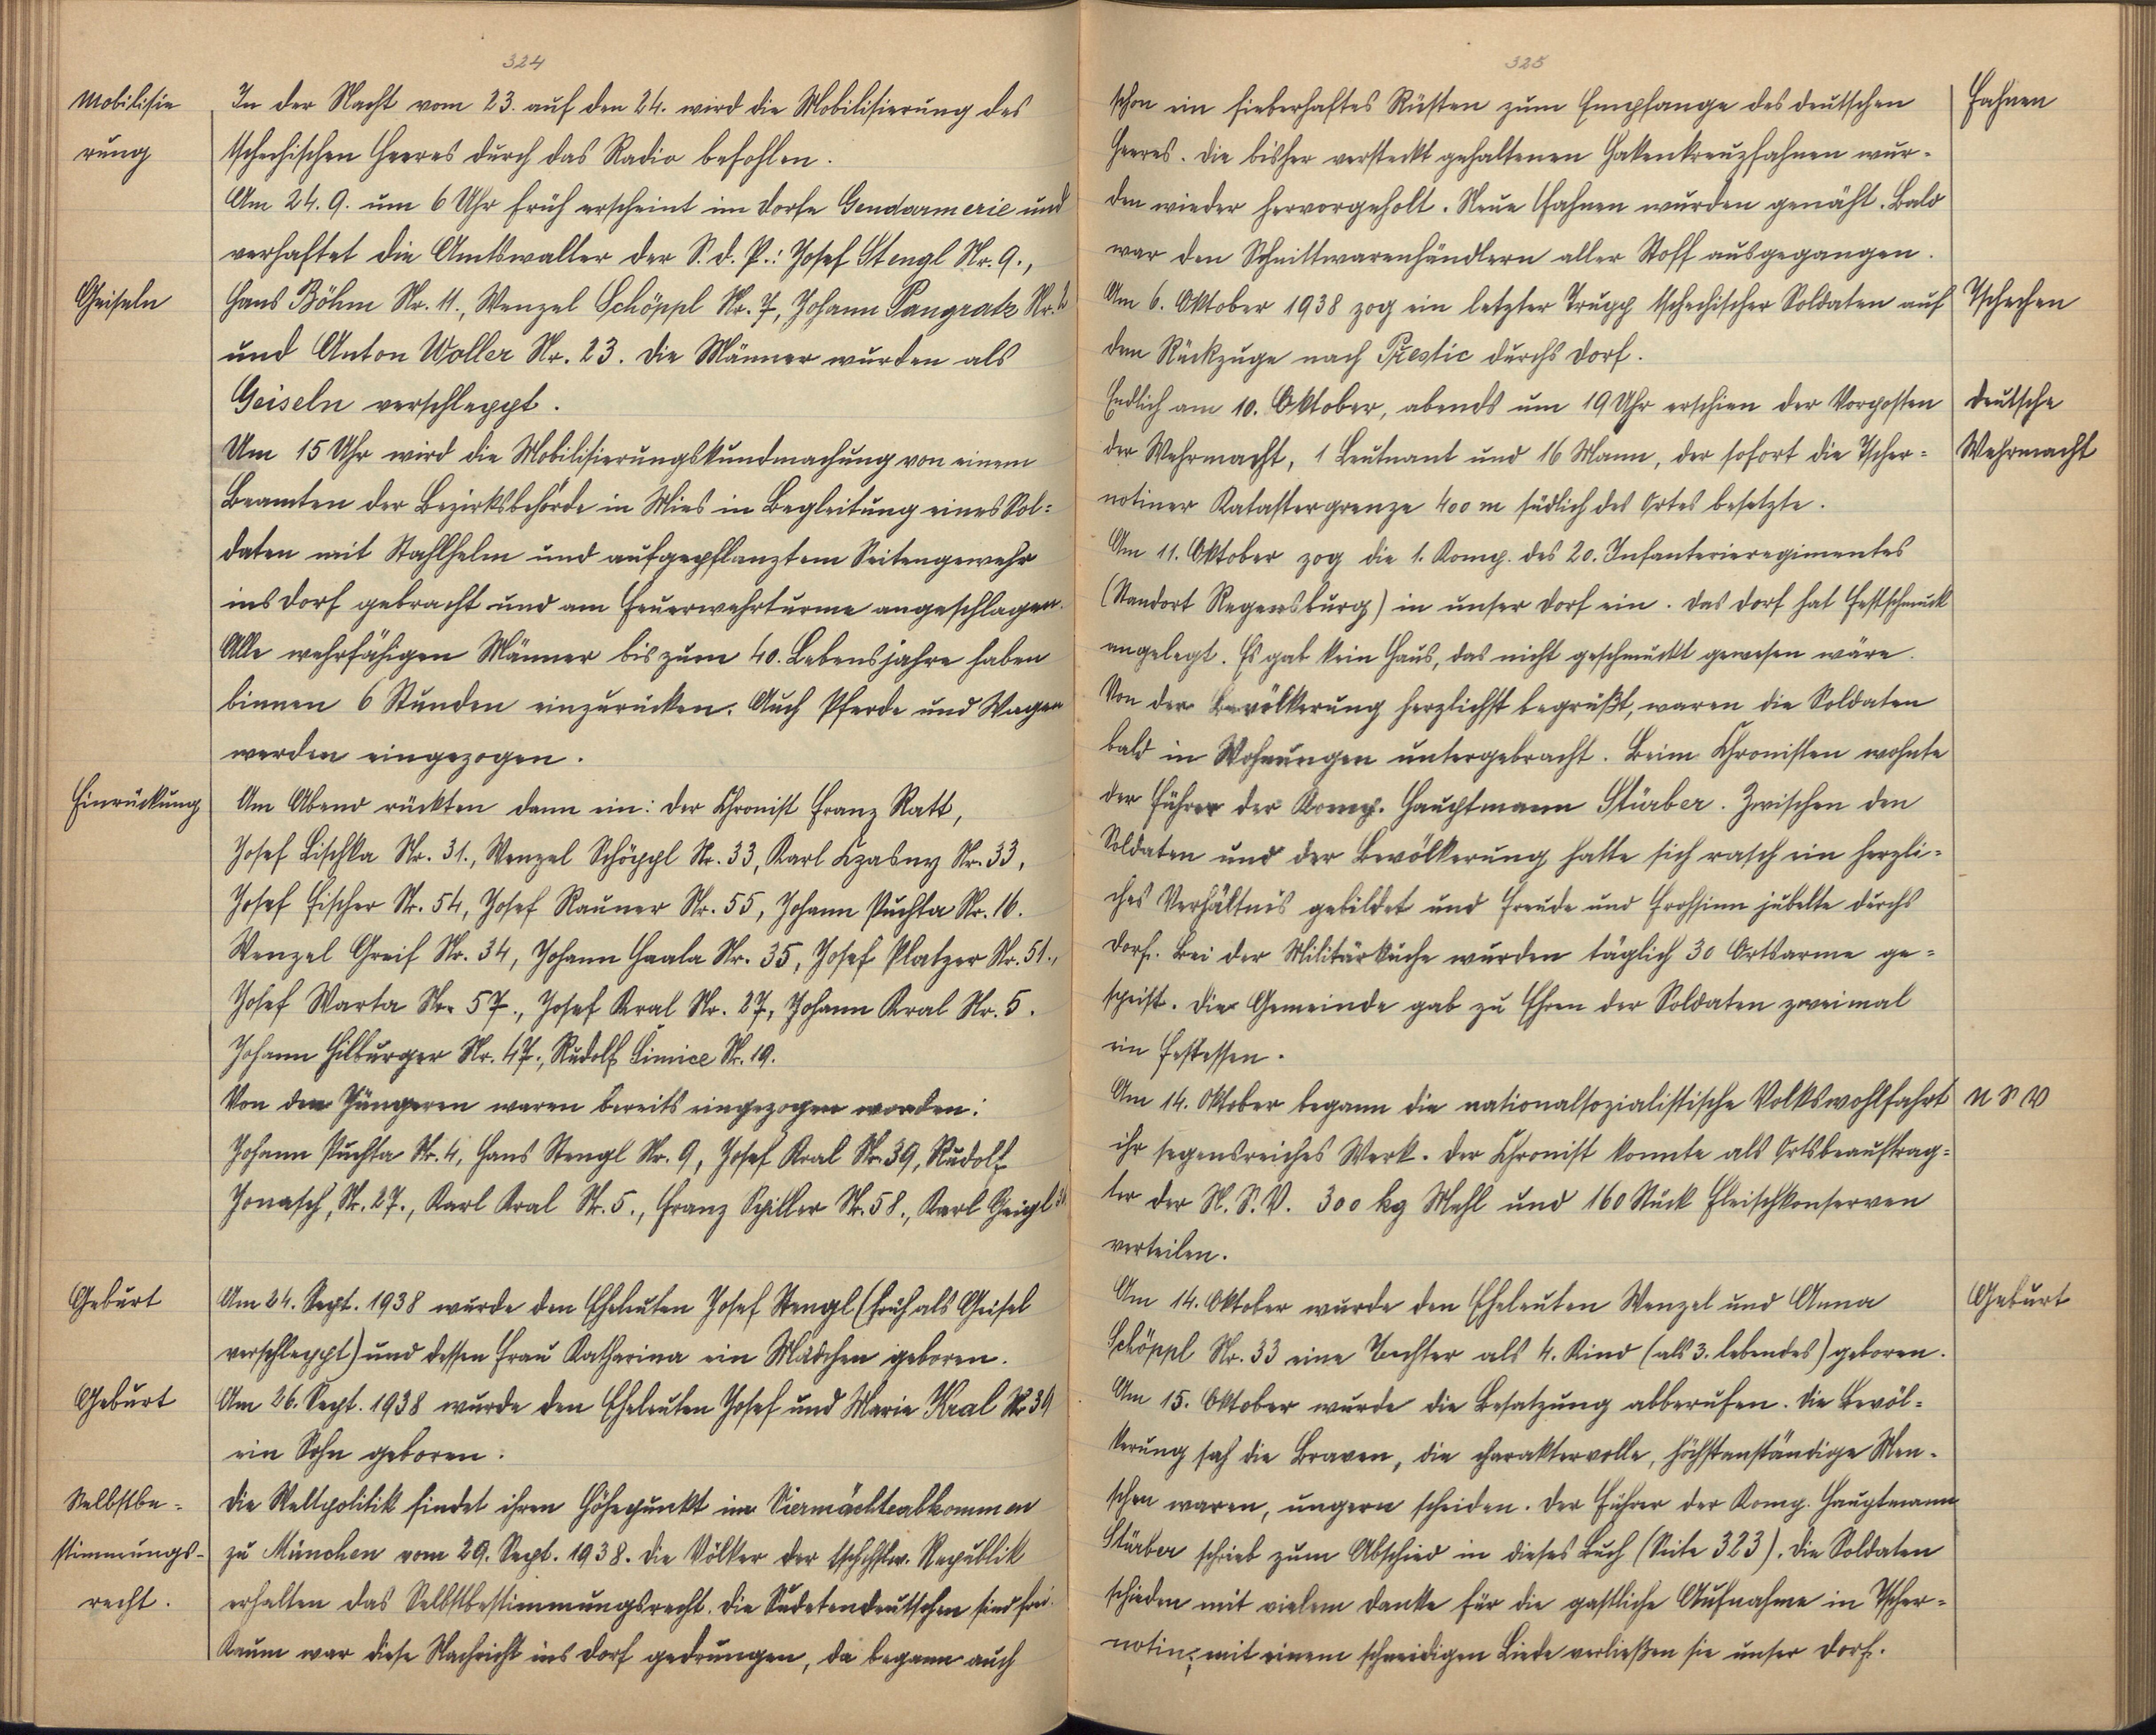 324
Mobilisie
rung
In der Nacht vom 23. auf den 24. wird die Mobilisierung des
tschechischen Heeres durch das Radio befohlen.
Am 24. 9. um 6 Uhr früh erscheint im Dorfe Gendarmerie und
verhaftet die Amtswalter der S. d. P.: Josef Stengl Nr. 9.,
Geiseln
Hans Böhm Nr. 11., Wenzel Schöppl Nr. 7, Johann Pangratz Nr.
und Anton Woller Nr. 23. Die Männer wurden als
Geiseln verschleppt.
Um 15 Uhr wird die Mobilisierungskundmachung von einem
Beamten der Bezirksbehörde in Mies in Begleitung eines Sol=
daten mit Stahlhelm und aufgepflanztem Seitengewehr
ins Dorf gebracht und am Feuerwehrturme angeschlagen.
Alle wehrfähigen Männer bis zum 40. Lebensjahre haben
binnen 6 Stunden einzurücken. Auch Pferde und Wagen
werden eingezogen.
Einrückung
Am Abend rückten dann ein: der Chronist Franz Ratt,
Josef Lischka Nr. 31., Wenzel Schöppl Nr. 33, Karl Nr. 33,
Josef Fischer Nr. 54, Josef Rauner Nr. 55, Johann Puchta Nr. 16.
Wenzel Greif Nr. 34, Johann Haala Nr. 35, Josef Platzer Nr. 51.,
Josef Warta Nr. 57., Josef Kral Nr. 27, Johann Kral Nr. 5.
Johann Hilburger Nr. 47., Rudolf Simice Nr. 19.
Von den Jüngeren waren bereits eingezogen worden:
Johann Puchta Nr. 4, Hans Stengl Nr. 9, Josef Kral Nr. 39, Rudolf
Jonasch, Nr. 27., Karl Kral Nr. 5., Franz Schiller Nr. 58., Karl Geigl
Geburt
Am 24. Sept. 1938 wurde den Eheleuten Josef Stengl (früh als Geisel
verschleppt) und dessen Frau Katharina ein Mädchen geboren.
Geburt
Am 26. Sept. 1938 wurde den Eheleuten Josef und Marie Kral Nr 39
ein Sohn geboren.
Selbstbe-
stimmungs-
recht.
Die Weltpolitik findet ihren Höhepunkt im Viermächteabkommen
zu München vom 29. Sept. 1938. Die Völker der tschchslow. Republik
erhalten das Selbstbestimmungsrecht. Die Sudetendeutschen sind frei.
Kaum war diese Nachricht ins Dorf gedrungen, da begann auch
325
schon ein fieberhaftes Rüsten zum Empfange des deutschen
Fahnen
Heeres. Die bisher versteckt gehaltenen Hakenkreuzfahnen wur-
den wieder hervorgeholt. Neue Fahnen wurden genäht. Bald
war den Schnittwarenhändlern aller Stoff ausgegangen.
Am 6. Oktober 1938 zog ein letzter Trupp tschechischer Soldaten auf
Tschechen
dem Rückzuge nach Přestic durchs Dorf.
Endlich am 10. Oktober, abends um 19 Uhr erschien der Vorposten
Deutsche
Wehrmacht
der Wehrmacht, 1 Leutnant und 16 Mann, der sofort die Tscher=
notiner Katastergrenze 400 m südlich des Ortes besetzte.
Am 11. Oktober zog die 1. Komp. des 20. Infanterieregimentes
(Standort Regensburg) in unser Dorf ein. Das Dorf hat Festschmuck
angelegt. Es gab kein Haus, das nicht geschmückt gewesen wäre.
Von der Bevölkerung herzlichst begrüßt, waren die Soldaten
bald in Wohnungen untergebracht. Beim Chronisten wohnte
der Führer der Komp. Hauptmann Stürber. Zwischen den
Soldaten und der Bevölkerung hatte sich rasch ein herzli=
ches Verhältnis gebildet und Freude und Frohsinn jubelte durchs
Dorf. Bei der Militärküche wurden täglich 30 Ortsarme ge=
speist. Die Gemeinde gab zu Ehren der Soldaten zweimal
ein Festessen.
Am 14. Oktober begann die nationalsozialistische Volkswohlfahrt
N S V
ihr segensreiches Werk. Der Chronist konnte als Ortsbeauftrag=
ter der N. S. V. 300 kg Mehl und 160 Stück Fleischkonserven
verteilen.
Am 14. Oktober wurde den Eheleuten Wenzel und Anna
Geburt
Schöppl Nr. 33 eine Tochter als 4. Kind (als 3. lebendes) geboren.
Am 15. Oktober wurde die Besatzung abberufen. Die Bevöl-
kerung sah die Braven, die charaktervolle, höchstanständige Men-
schen waren, ungern scheiden. Der Führer der Komp. Hauptmann
Stürber schrieb zum Abschied in dieses Buch (Seite 323). Die Soldaten
schieden mit vielem Danke für die gastliche Aufnahme in Tscher=
notin; mit einem schneidigen Liede verließen sie unser Dorf.